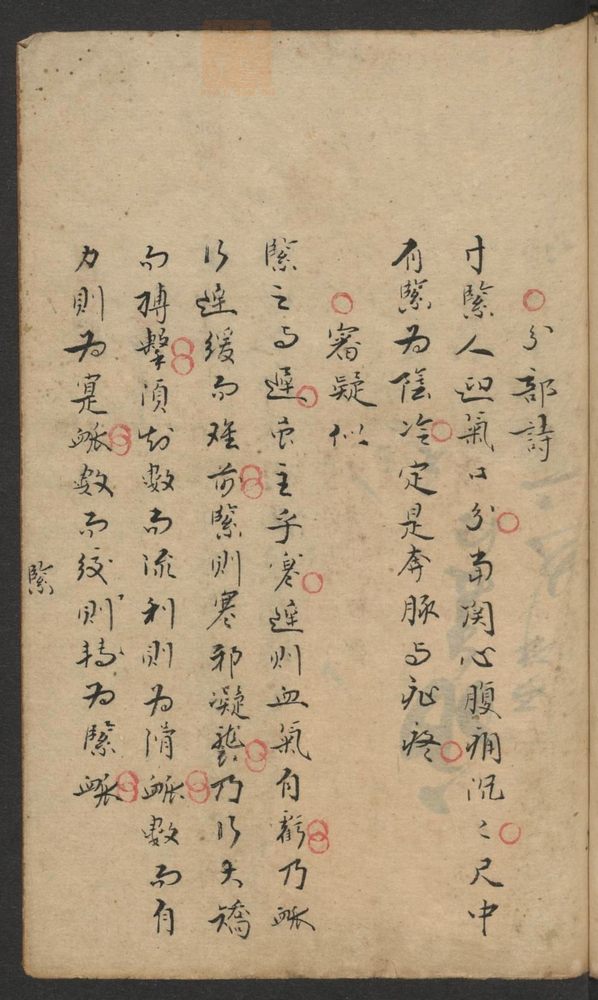 ○分部詩
寸緊人迎氣口分當関心腹痛沉〻尺中
有緊為陰冷定是奔豚与疝疼
○審疑似
緊之与遲虽主乎寒遲則血氣有虧乃脉
行遲緩而难前緊則寒邪凝襲乃行夭矯
而搏擊須知數而流利則为滑脉數而有
力則为寔脉數而絞則轉为緊脉
緊